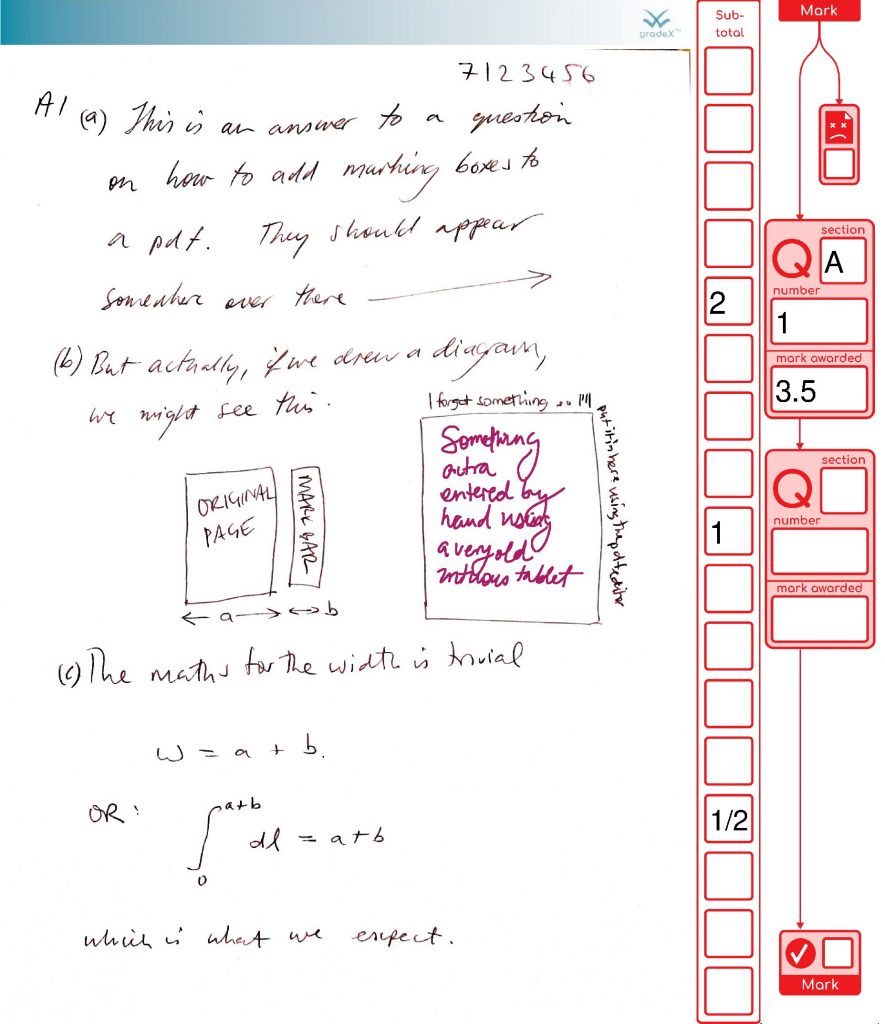 gradeX™
7123456
A1 (a) This is an answer to a question
on how to add marking boxes to
a pdf. They should appear
somewhere over there
(b) But actually, if we drew a diagram,
we might see this.
I forgot something ... !!!!
put it in here using the pdf editor
ORIGINAL
PAGE
MARK BAR
a
b
Something
extra
entered by
hand using
a very old
tablet
(c) The maths for the width is trivial
w = a + b.
OR:
∫₀ᵃ⁺ᵇ dl = a+b
which is what we expect.
Sub-
total
2
1
1/2
Mark
section
Q A
number
1
mark awarded
3.5
section
Q
number
mark awarded
Mark